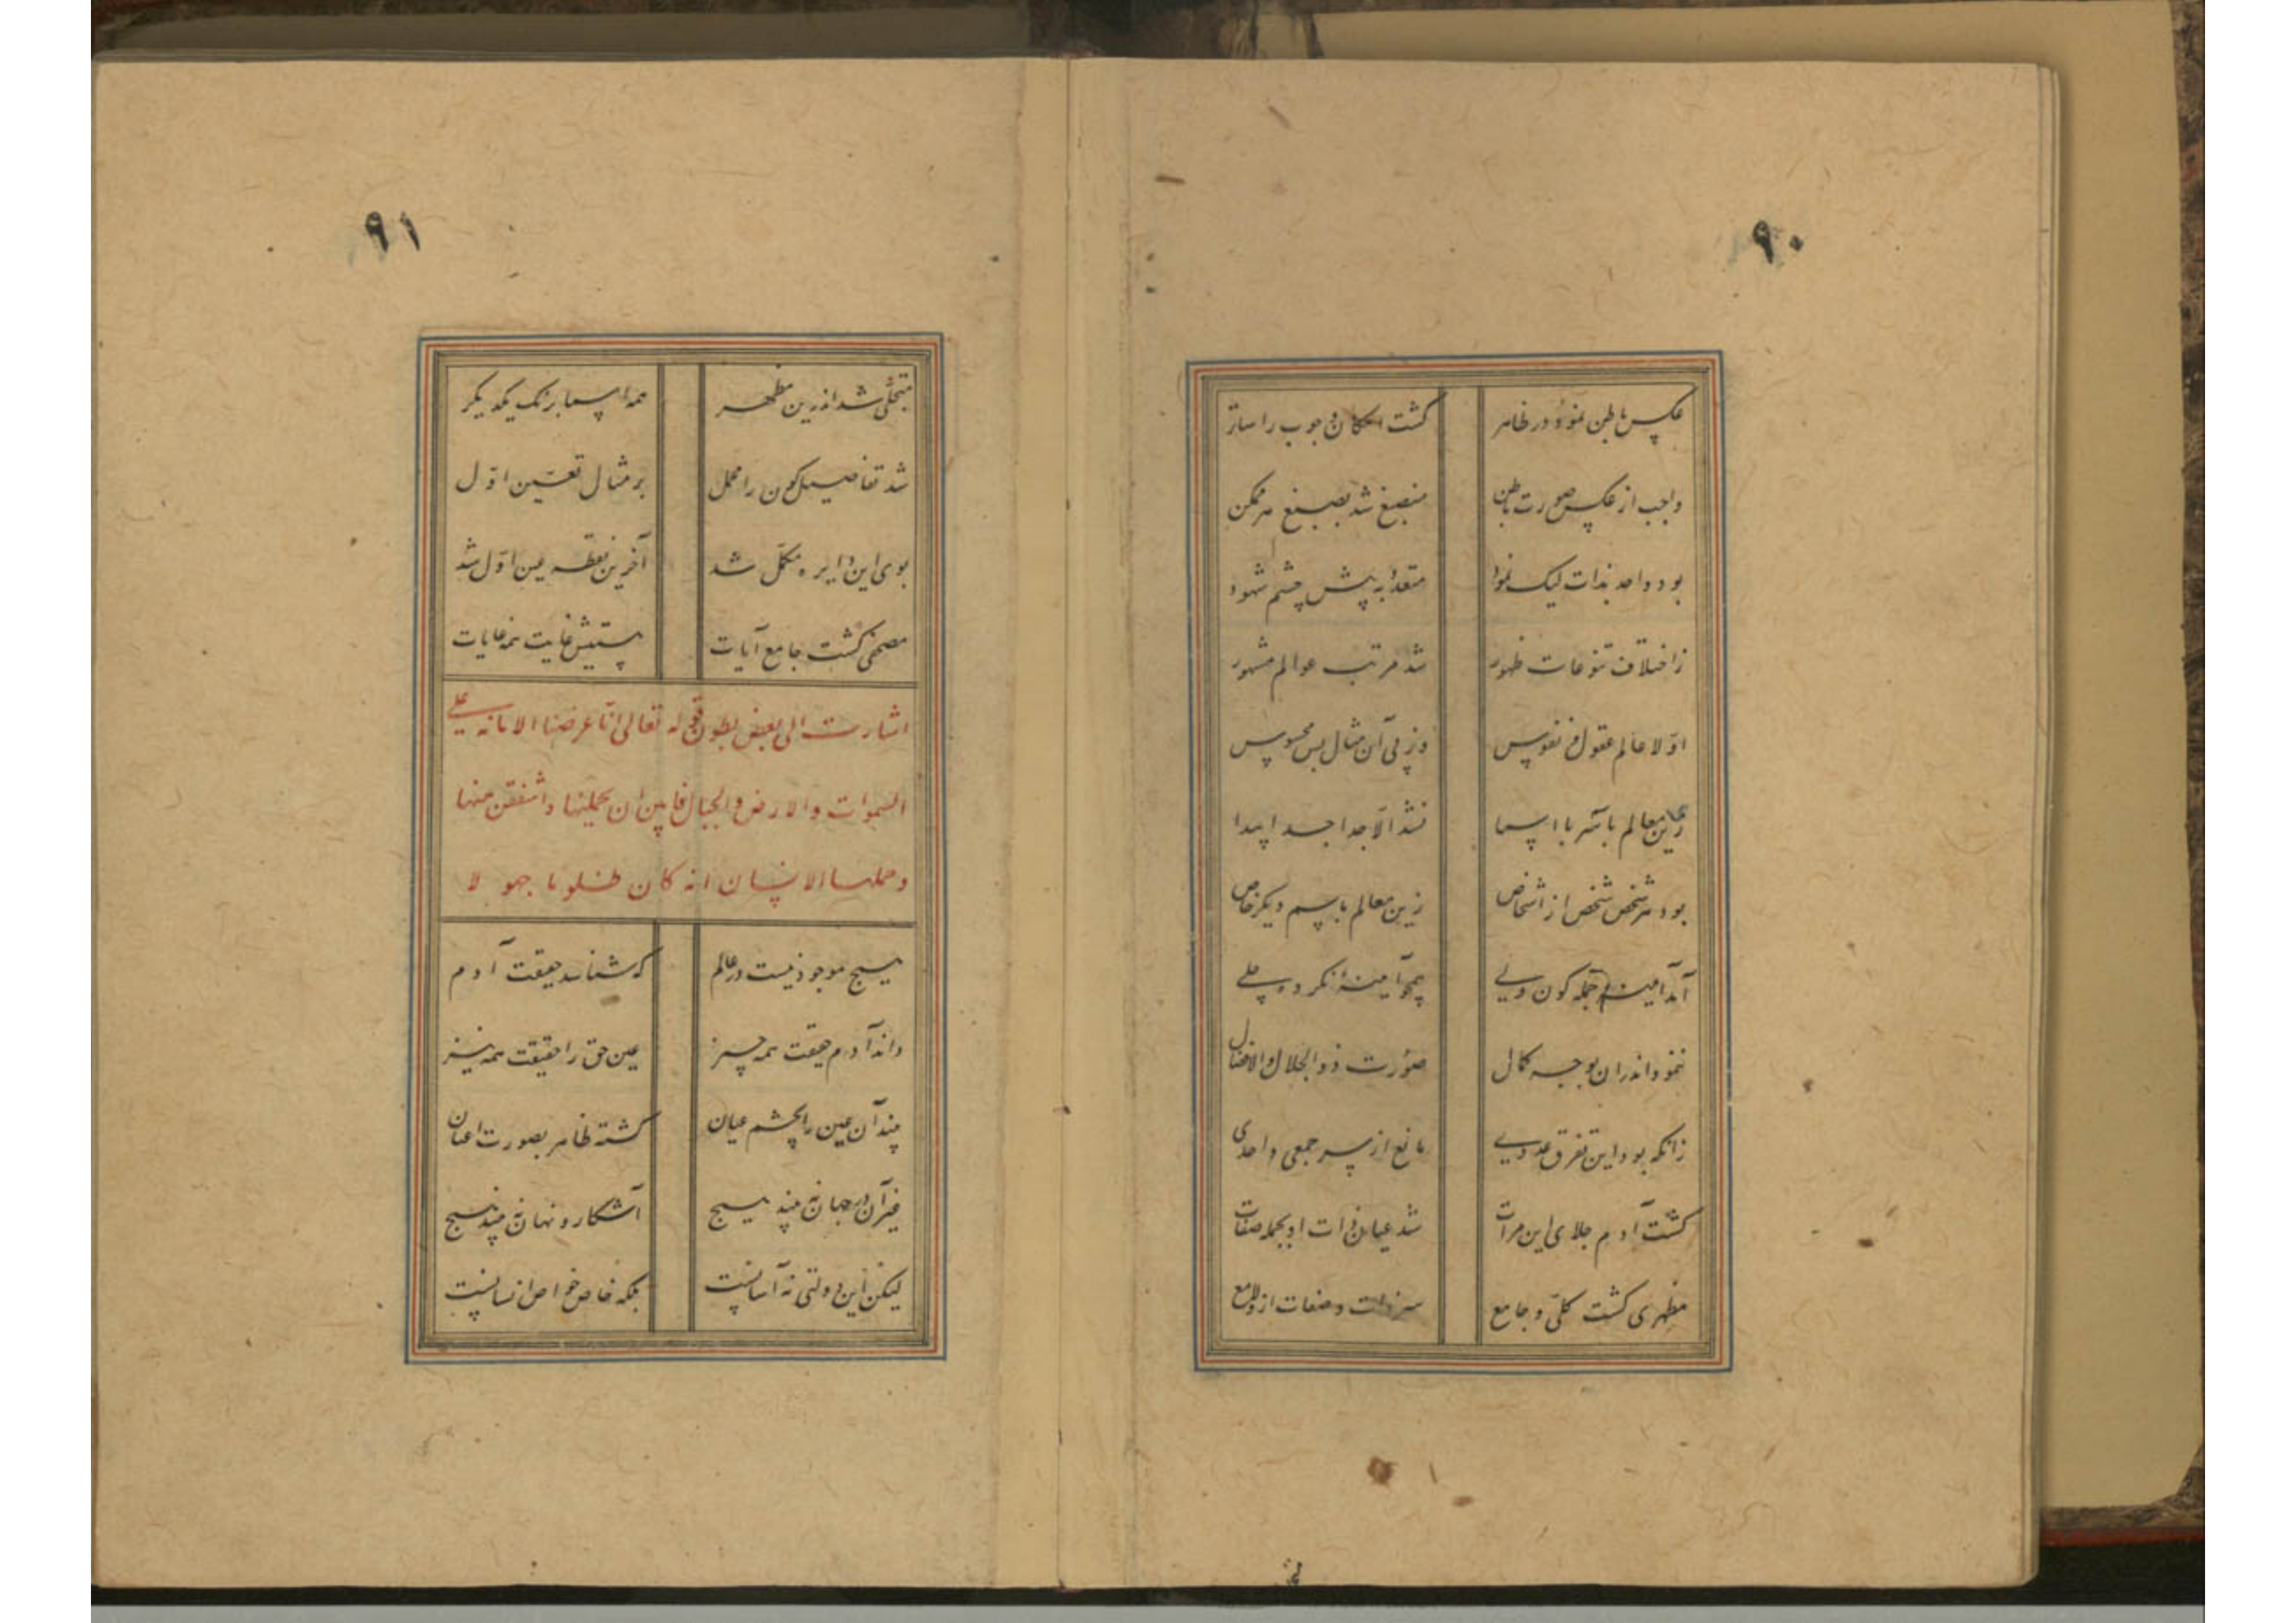 ۹۰
عکس باطن نمود در ظاهر گشت امکان وجوب را ساتر
واجب از عکس صورت باطن منصبغ شد بصبغ هر ممکن
بود واحد بذات لیک نمود متعدد به پیش چشم شهود
ز اختلاف تنوعات ظهور شد مرتب عوالم مشهور
اولا عالم عقول و نفوس وز پی آن مثال پس محسوس
زین معالم باسر با اسما نشد الا جدا جدا پیدا
بود هر شخص شخص از اشخاص زین معالم باسم دیگر خاص
آمد آیینه جمله کون ولی همچو آیینهٔ نکرده جلی
ننمود اندران بوجه کمال صورت ذوالجلال والافضال
زانکه بود این تفرق عددی مانع از سر جمعی واحدی
گشت آدم جلای این مرآت شد عیان ذات او بجمله صفات
مظهری گشت کلی و جامع سر ذات و صفات ازو لامع
۹۱
متجلی شد اندرین مظهر همه اسما برنگ یکدیگر
شد تفاصیل کون را مجمل بر مثال تعین اول
بوی این دایره مکمل شد آخرین نقطه عین اول شد
مصحفی گشت جامع آیات هستیش غایت همه غایات
اشارت الی بعض بطون قوله تعالی انا عرضنا الامانه علی
السموات والارض والجبال فابین ان یحملنها واشفقن منها
وحملها الانسان انه کان ظلوما جهولا
هیچ موجود نیست در عالم که شناسد حقیقت آدم
داند آدم حقیقت همه چیز عین حق را حقیقت همه نیز
بیند آن عین را بچشم عیان گشته ظاهر بصورت اعیان
غیر آن در جهان نه بیند هیچ آشکار و نهان نه بیند هیچ
لیکن این دولتی نه آسانیست بلکه خاص خواص انسانیست